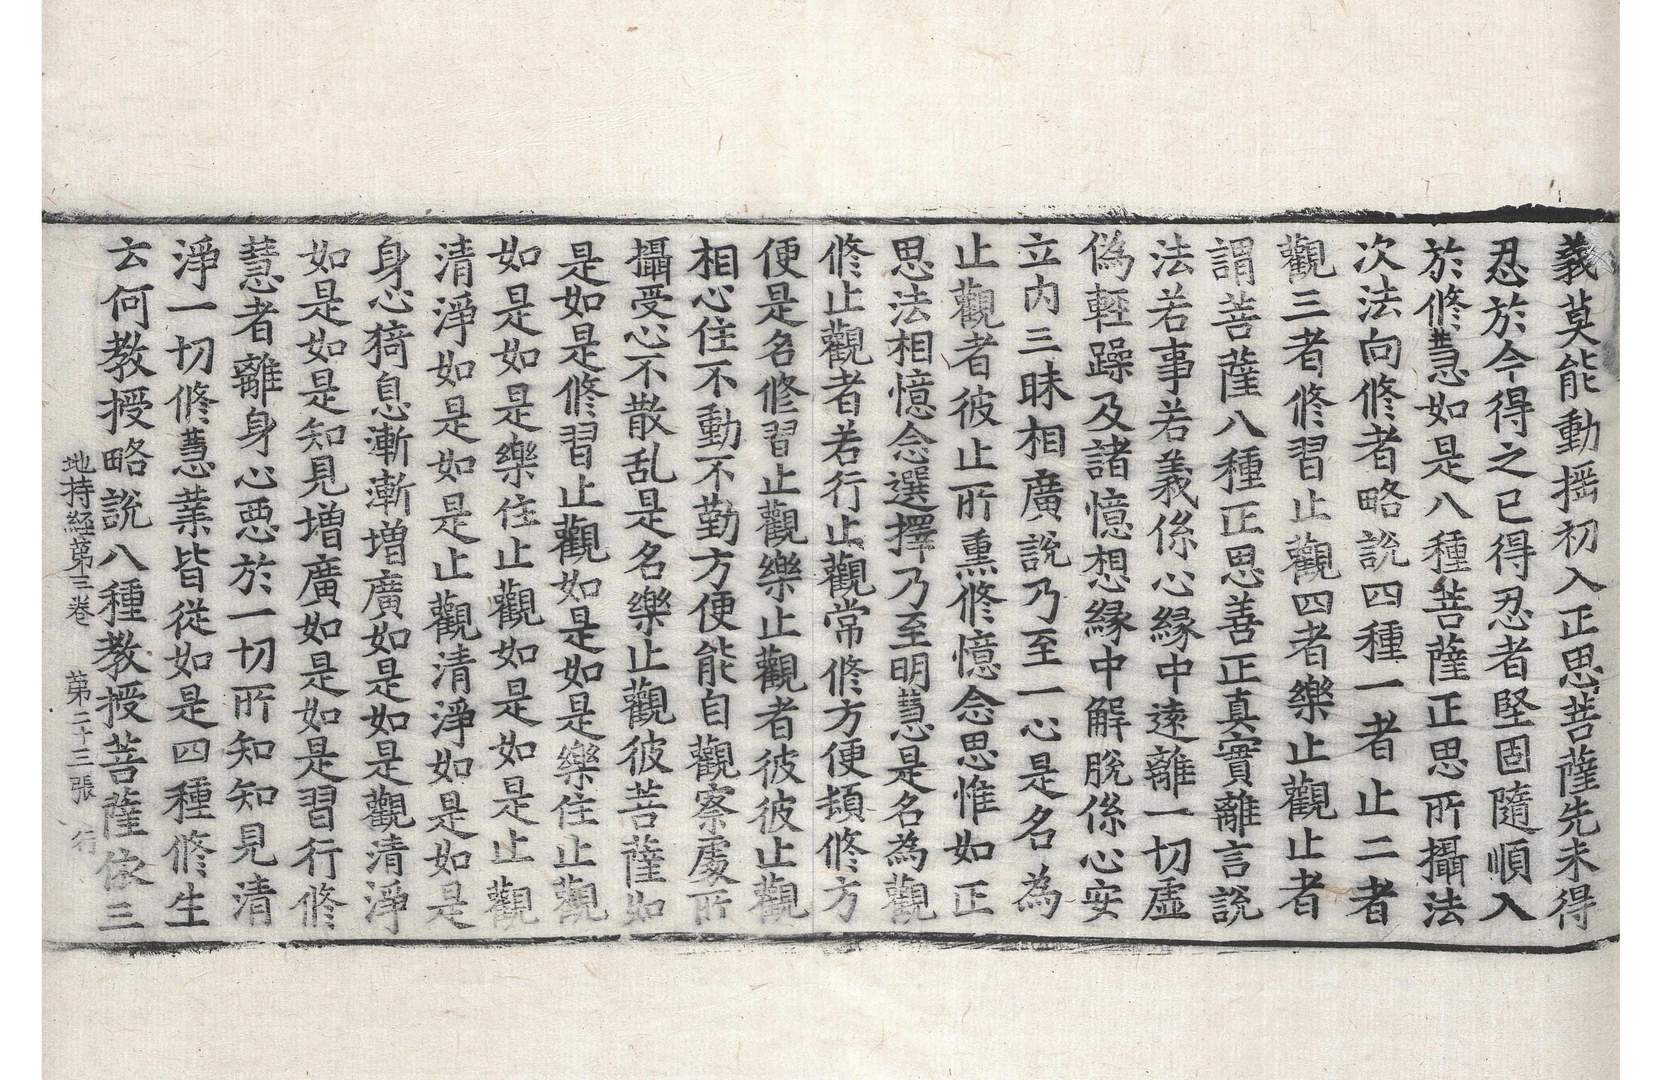 義莫能動搖初入正思菩薩先未得
忍於今得之已得忍者堅固隨順入
於修慧如是八種菩薩正思所攝法
次法向修者略說四種一者止二者
觀三者修習止觀四者樂止觀止者
謂菩薩八種正思善正真實離言說
法若事若義係心緣中遠離一切虛
偽輕躁及諸憶想緣中解脫係心安
立內三昧相廣說乃至一心是名為
止觀者彼止所熏修憶念思惟如正
思法相憶念選擇乃至明慧是名為觀
修止觀者若行止觀常修方便頻修方
便是名修習止觀樂止觀者彼彼止觀
相心住不動不勤方便能自觀察處所
攝受心不散乱是名樂止觀彼菩薩如
是如是修習止觀如是如是樂住止觀
如是如是樂住止觀如是如是止觀
清淨如是如是止觀清淨如是如是
身心猗息漸漸增廣如是如是觀清淨
如是如是知見增廣如是如是習行修
慧者離身心惡於一切所知知見清
淨一切修慧業皆從如是四種修生
云何教授略說八種教授菩薩依三
地持經第三卷　第二十三張　行